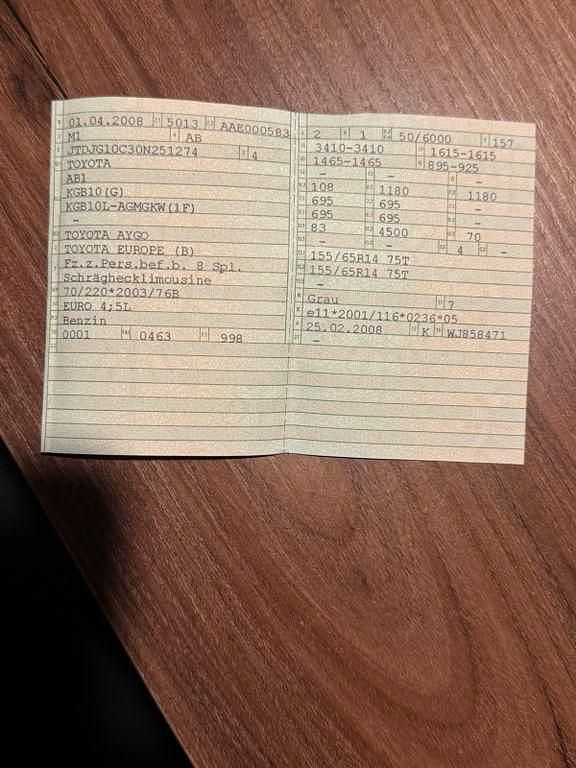 01.04.2008 5013 AAE000583
M1 AB
JTDJG10C30N251274 4
TOYOTA
AB1
KGB10(G)
KGB10L-AGMGKW(1F)
-
TOYOTA AYGO
TOYOTA EUROPE (B)
Fz.z.Pers.bef.b. 8 Spl.
Schräghecklimousine
70/220*2003/76B
EURO 4;5L
Benzin
0001 0463 998
2 1 50/6000 157
3410-3410 1615-1615
1465-1465 895-925
- - -
108 1180 1180
695 695 -
695 695 -
83 4500 70
- - 4 -
155/65R14 75T
155/65R14 75T
-
Grau 7
e11*2001/116*0236*05
25.02.2008 K WJ858471
-